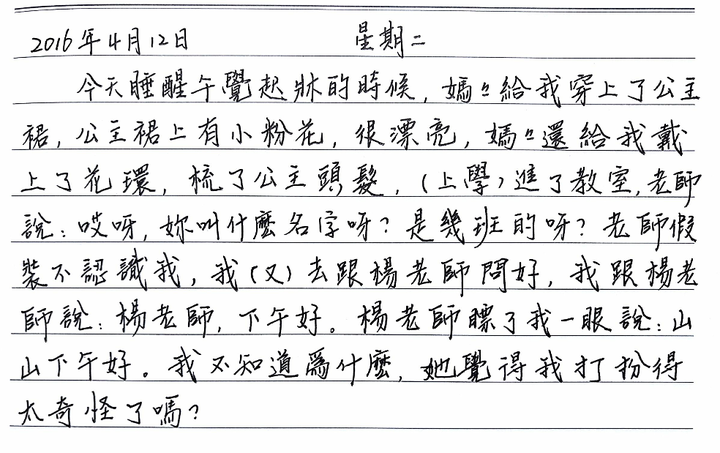 2016年4月12日 星期二
今天睡醒午覺起牀的時候,媽々給我穿上了公主
裙,公主裙上有小粉花,很漂亮,媽々還給我戴
上了花環,梳了公主頭髮,(上學)進了教室,老師
說:哎呀,妳叫什麼名字呀?是幾班的呀?老師假
裝不認識我,我(又)去跟楊老師問好,我跟楊老
師說:楊老師,下午好。楊老師瞟了我一眼說:山
山下午好。我不知道爲什麼,她覺得我打扮得
太奇怪了嗎?